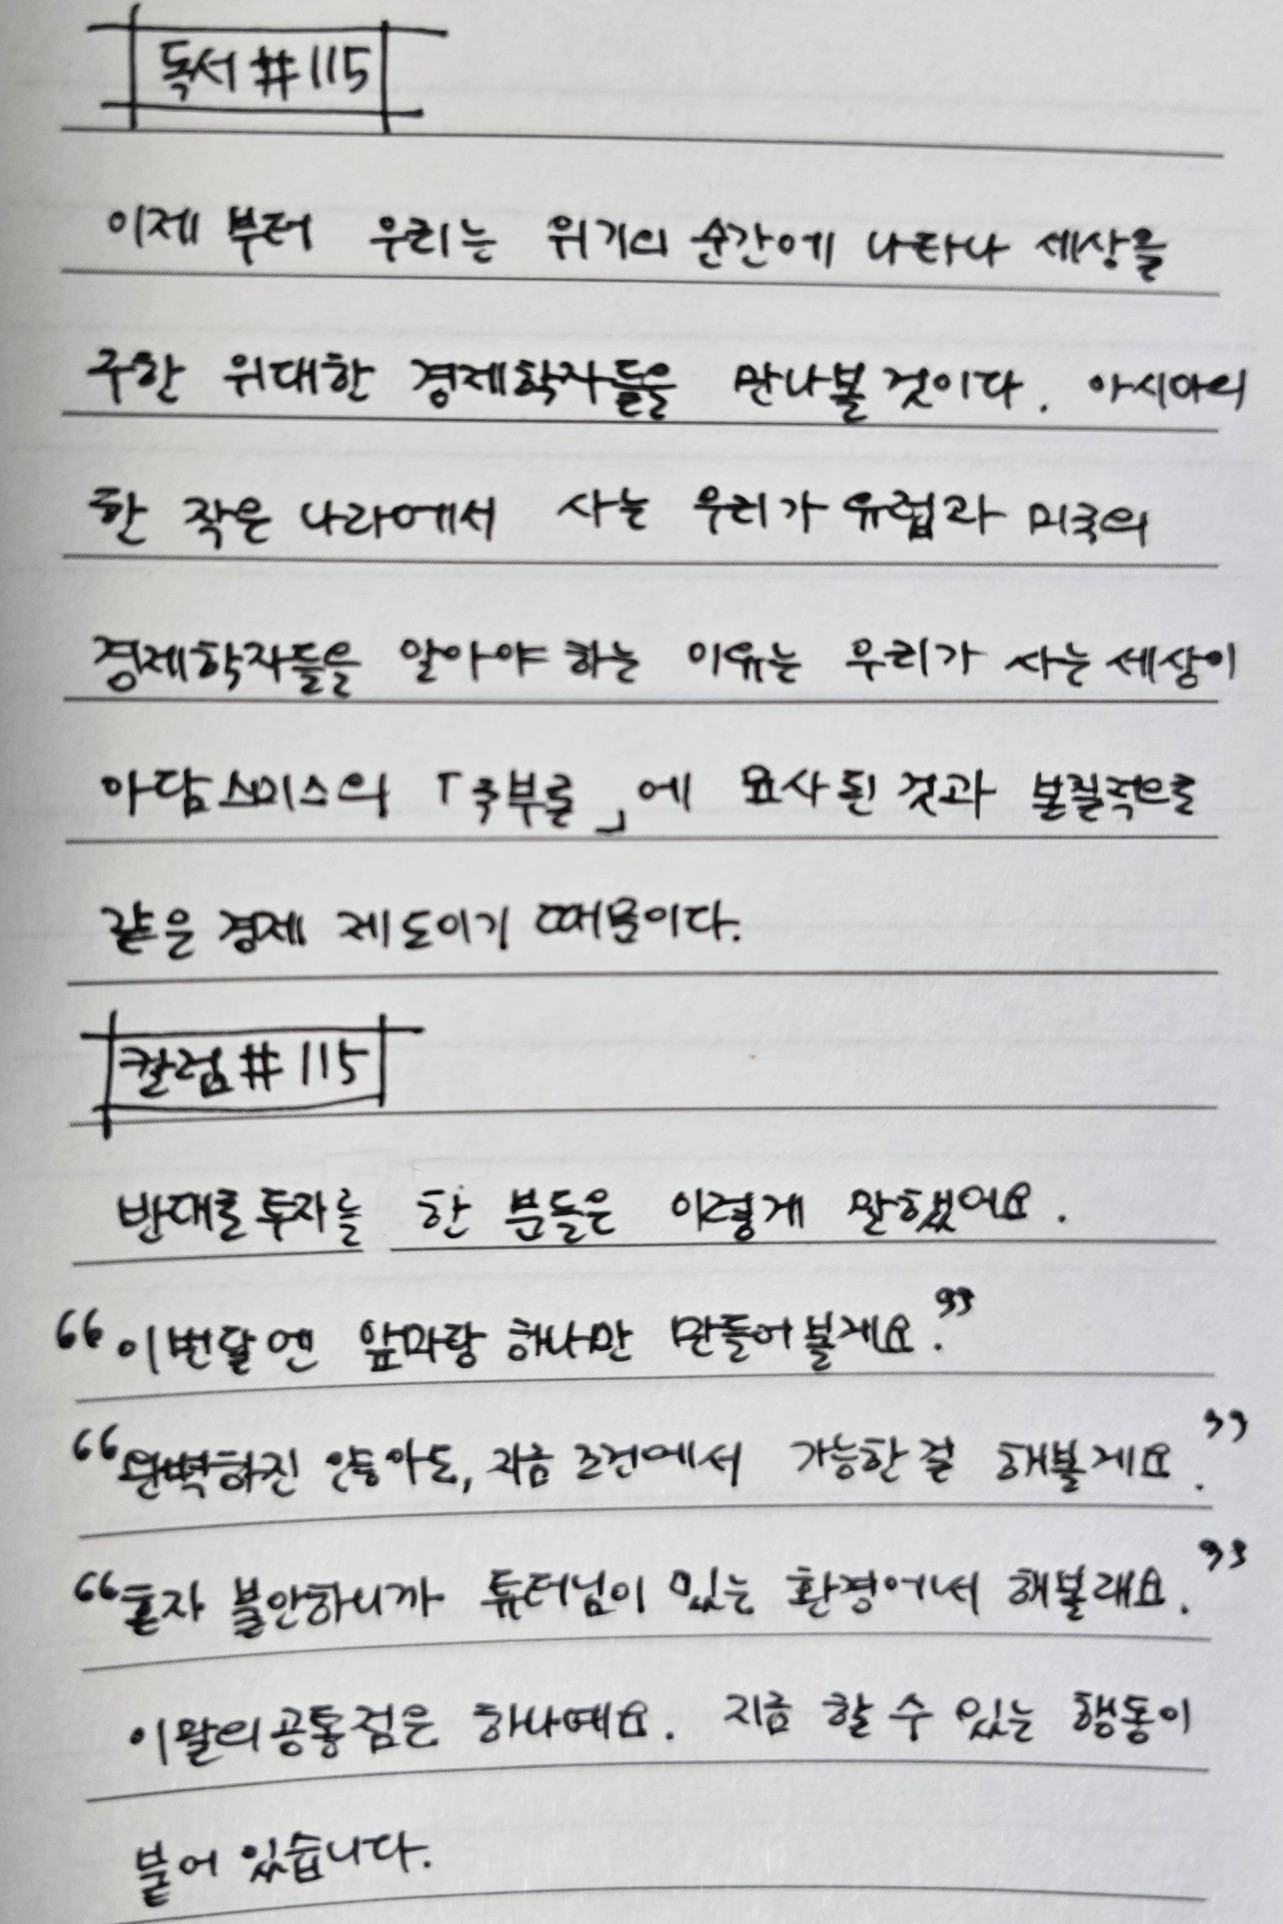 독서 #115
이제 부터 우리는 위기의 순간에 나타나 세상을
구한 위대한 경제학자들을 만나볼 것이다. 아시아의
한 작은 나라에서 사는 우리가 유럽과 미국의
경제학자들을 알아야 하는 이유는 우리가 사는 세상이
아담스미스의 「국부론」에 묘사된 것과 본질적으로
같은 경제 제도이기 때문이다.
칼럼 #115
반대로 투자를 한 분들은 이렇게 말했어요.
“이번달엔 앞마당 하나만 만들어볼게요.”
“완벽하진 않아도, 지금 조건에서 가능한 걸 해볼게요.”
“혼자 불안하니까 튜터님이 있는 환경에서 해볼래요.”
이 말의 공통점은 하나예요. 지금 할 수 있는 행동이
붙어 있습니다.